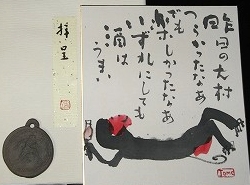 昨日の大村
つらかったなあ
でも
楽しかったなあ
いずれにしても
酒は
うまい
拝呈